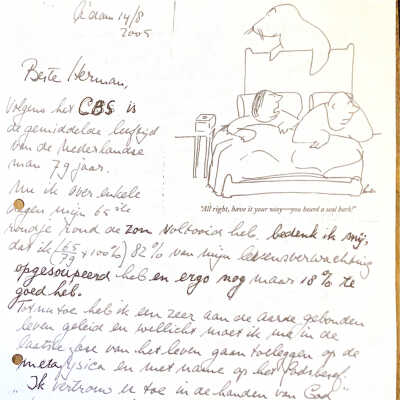 A'dam 14/8
2005
Beste Herman,
Volgens het CBS is
de gemiddelde leeftijd
van de nederlandse
man 79 jaar.
Nu ik over enkele
dagen mijn 65ste
"All right, have it your way—you heard a seal bark!"
rondje rond de zon voltooid heb, bedenk ik mij,
dat ik (65/79 x 100%) 82% van mijn levensverwachting
opgesoupeerd heb en ergo nog maar 18% te
goed heb.
Tot nu toe heb ik een zeer aan de aarde gebonden
leven geleid en wellicht moet ik me in de
laatste fase van het leven gaan toeleggen op de
metafysica en met name op het Godsbesef.
"Ik vertrouw u toe in de handen van God